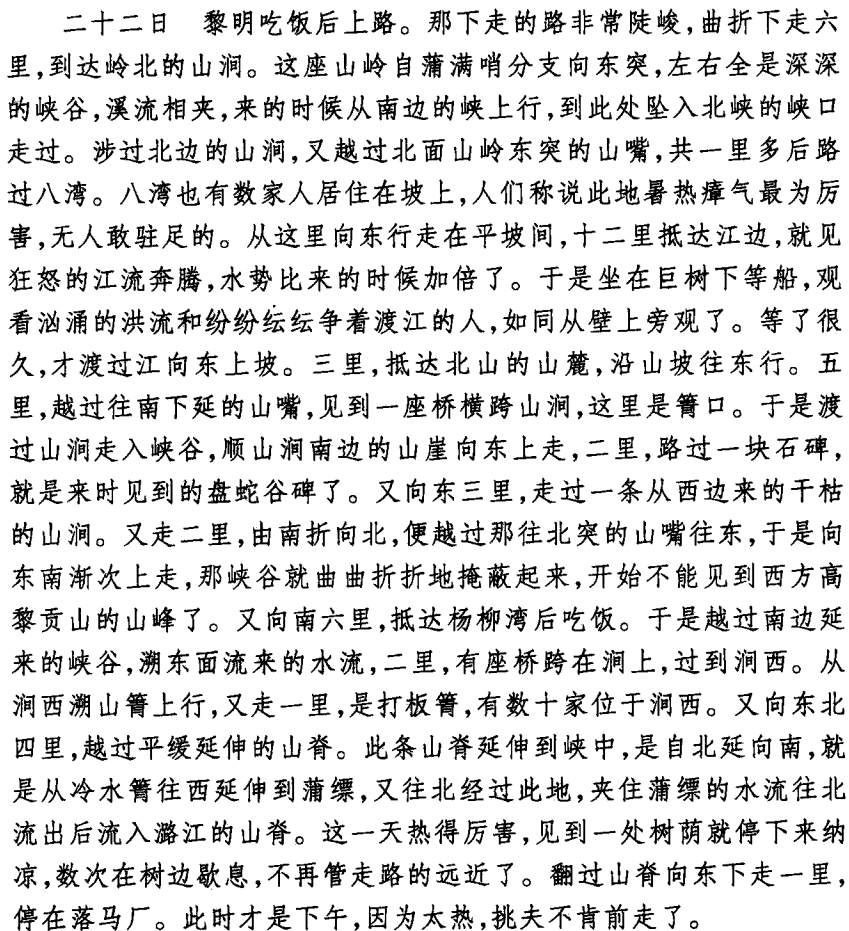 二十二日 黎明吃饭后上路。那下走的路非常陡峻,曲折下走六
里,到达岭北的山涧。这座山岭自蒲满哨分支向东突,左右全是深深
的峡谷,溪流相夹,来的时候从南边的峡上行,到此处坠入北峡的峡口
走过。涉过北边的山涧,又越过北面山岭东突的山嘴,共一里多后路
过八湾。八湾也有数家人居住在坡上,人们称说此地暑热瘴气最为厉
害,无人敢驻足的。从这里向东行走在平坡间,十二里抵达江边,就见
狂怒的江流奔腾,水势比来的时候加倍了。于是坐在巨树下等船,观
看汹涌的洪流和纷纷纭纭争着渡江的人,如同从壁上旁观了。等了很
久,才渡过江向东上坡。三里,抵达北山的山麓,沿山坡往东行。五
里,越过往南下延的山嘴,见到一座桥横跨山涧,这里是箐口。于是渡
过山涧走入峡谷,顺山涧南边的山崖向东上走,二里,路过一块石碑,
就是来时见到的盘蛇谷碑了。又向东三里,走过一条从西边来的干枯
的山涧。又走二里,由南折向北,便越过那往北突的山嘴往东,于是向
东南渐次上走,那峡谷就曲曲折折地掩蔽起来,开始不能见到西方高
黎贡山的山峰了。又向南六里,抵达杨柳湾后吃饭。于是越过南边延
来的峡谷,溯东面流来的水流,二里,有座桥跨在涧上,过到涧西。从
涧西溯山箐上行,又走一里,是打板箐,有数十家位于涧西。又向东北
四里,越过平缓延伸的山脊。此条山脊延伸到峡中,是自北延向南,就
是从冷水箐往西延伸到蒲缥,又往北经过此地,夹住蒲缥的水流往北
流出后流入潞江的山脊。这一天热得厉害,见到一处树荫就停下来纳
凉,数次在树边歇息,不再管走路的远近了。翻过山脊向东下走一里,
停在落马厂。此时才是下午,因为太热,挑夫不肯前走了。